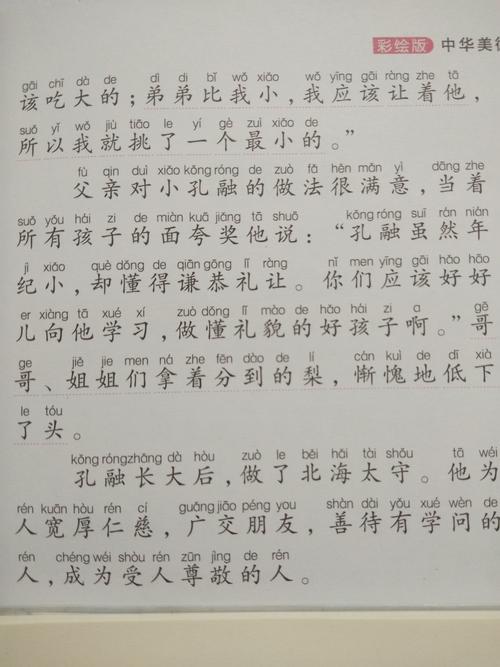 彩绘版 中华美
gāi chī dà de dì di bǐ wǒ xiǎo wǒ yīng gāi ràng zhe tā
该吃大的；弟弟比我小，我应该让着他，
suǒ yǐ wǒ jiù tiāo le yí gè zuì xiǎo de
所以我就挑了一个最小的。”
fù qin duì xiǎo kǒng róng de zuò fǎ hěn mǎn yì dāng zhe
父亲对小孔融的做法很满意，当着
suǒ yǒu hái zi de miàn kuā jiǎng tā shuō kǒng róng suī rán nián
所有孩子的面夸奖他说：“孔融虽然年
jì xiǎo què dǒng de qiān gōng lǐ ràng nǐ men yīng gāi hǎo hāo
纪小，却懂得谦恭礼让。你们应该好好
er xiàng tā xué xí zuò dǒng lǐ mào de hǎo hái zi a gē
儿向他学习，做懂礼貌的好孩子啊。”哥
ge jiě jie men ná zhe fēn dào de lí cán kuì de dī xià
哥、姐姐们拿着分到的梨，惭愧地低下
le tóu
了头。
kǒng róng zhǎng dà hòu zuò le běi hǎi tài shǒu tā wéi
孔融长大后，做了北海太守。他为
rén kuān hòu rén cí guǎng jiāo péng you shàn dài yǒu xué wèn de
人宽厚仁慈，广交朋友，善待有学问的
rén chéng wéi shòu rén zūn jìng de rén
人，成为受人尊敬的人。